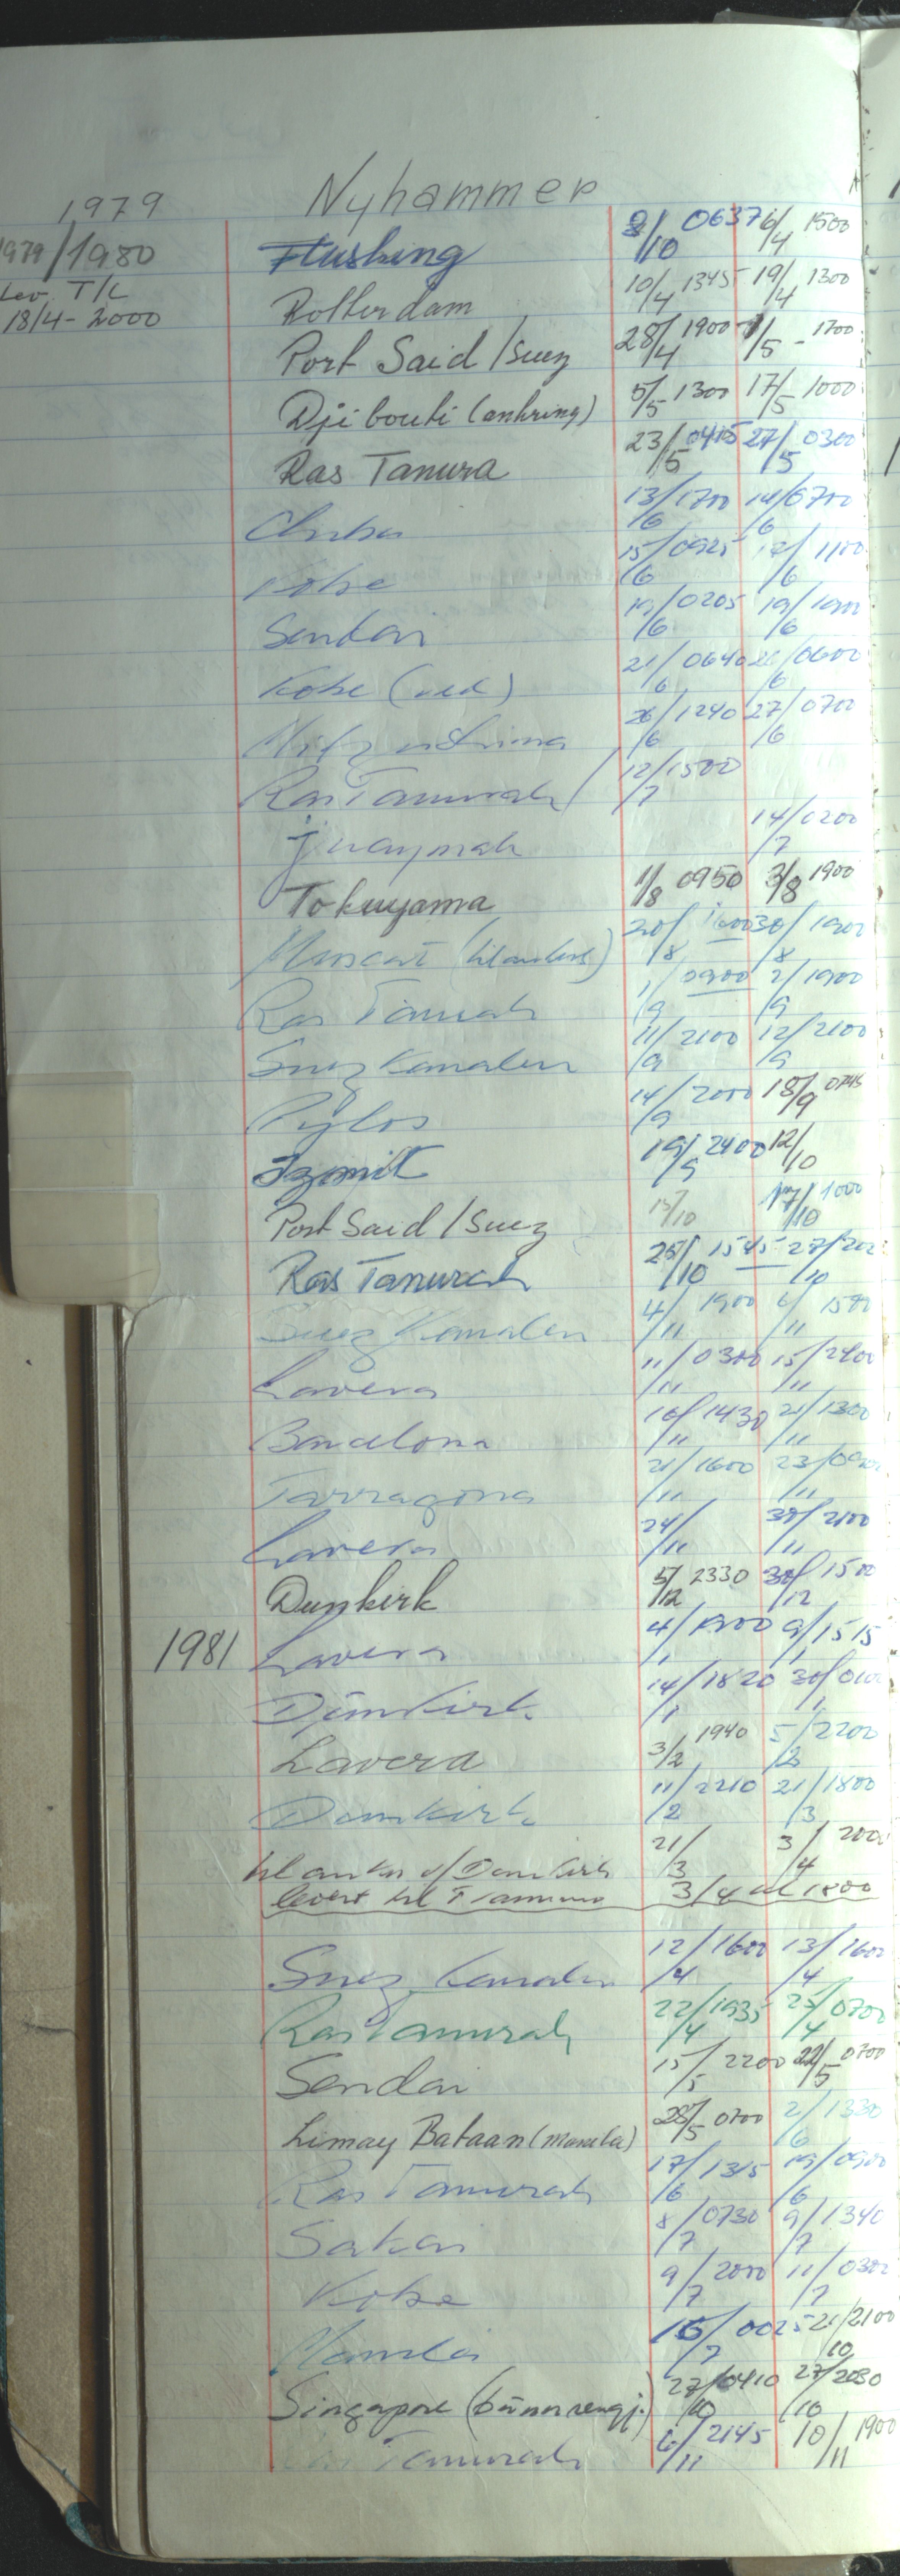 1979 Nyhammer
1979/1980 Flushing 8/10 0637 6/4 1500
Lev. T/C Rotterdam 10/4 1345 19/4 1300
18/4 - 2000 Port Said/Suez 28/4 1900 1/5 - 1700
Djibouti (ankring) 5/5 1300 17/5 1000
Ras Tanura 23/5 0415 27/5 0300
Chiba 13/6 1700 14/6 0700
Kobe 15/6 0925 /6 1100
Sendai 19/6 0205 19/6
Kobe 21/6 0640 /6 0600
Mitzushima 26/6 1240 27/6 0700
Ras Tanurah/ 12/7 1500
Juaymah 14/7 0200
Tokuyama 1/8 0950 3/8 1900
Muscat (til ankers) 20/8 30/8 1900
Ras Tanurah 1/9 0900 2/9 1900
Suez Kanalen 11/9 2100 12/9 2100
Pylos 14/9 2000 18/9 0745
Izmit 19/9 2400 12/10
Port Said/Suez 13/10 17/10 1000
Ras Tanurah 25/10 1545 27/10
Suez Kanalen 4/11 1900 6/11
Lavera 11/11 0300 15/11 2400
Barcelona 16/11 1430 21/11 1300
Tarragona 21/11 1600 23/11
Lavera 24/11 30/11 2100
Dunkirk 5/12 2330 30/12 1500
1981 Lavera 4/1 1900 9/1 1515
Dünkirk 14/1 1820 30/1
Lavera 3/2 1940 5/2 2200
Dunkirk 11/2 2210 21/3 1800
til ankers v/Dunkirk 21/3 3/4 2000
levert til 3/4 kl 1800
Suez Kanalen 12/4 1600 13/4 1600
Ras Tanurah 22/4 1935 25/4 0700
Sendai 15/5 2200 22/5 0700
Limay Bataan (Manila) 28/5 0700 2/6 1330
Ras Tanurah 17/6 1315 19/6 0900
Sakai 8/7 0730 9/7 1340
Kobe 9/7 2000 11/7 0300
Manila 16/7 0025 21/10 2100
Singapore (bunnrengj.) 27/10 0410 27/10 2030
Ras Tanurah 6/11 2145 10/11 1900